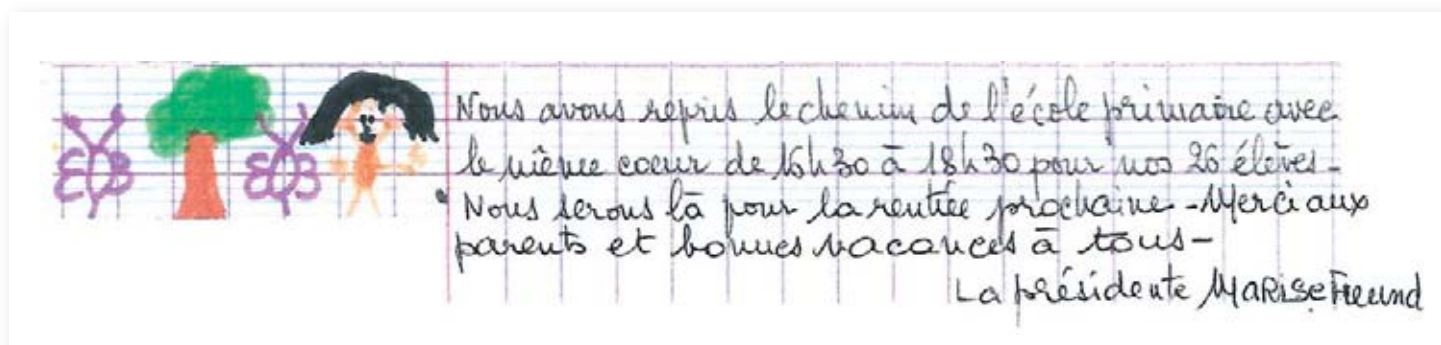 Nous avons repris le chemin de l'école primaire avec
le même coeur de 16h30 à 18h30 pour nos 26 élèves -
Nous serons là pour la rentrée prochaine - Merci aux
parents et bonnes vacances à tous -
La présidente Marise Freund